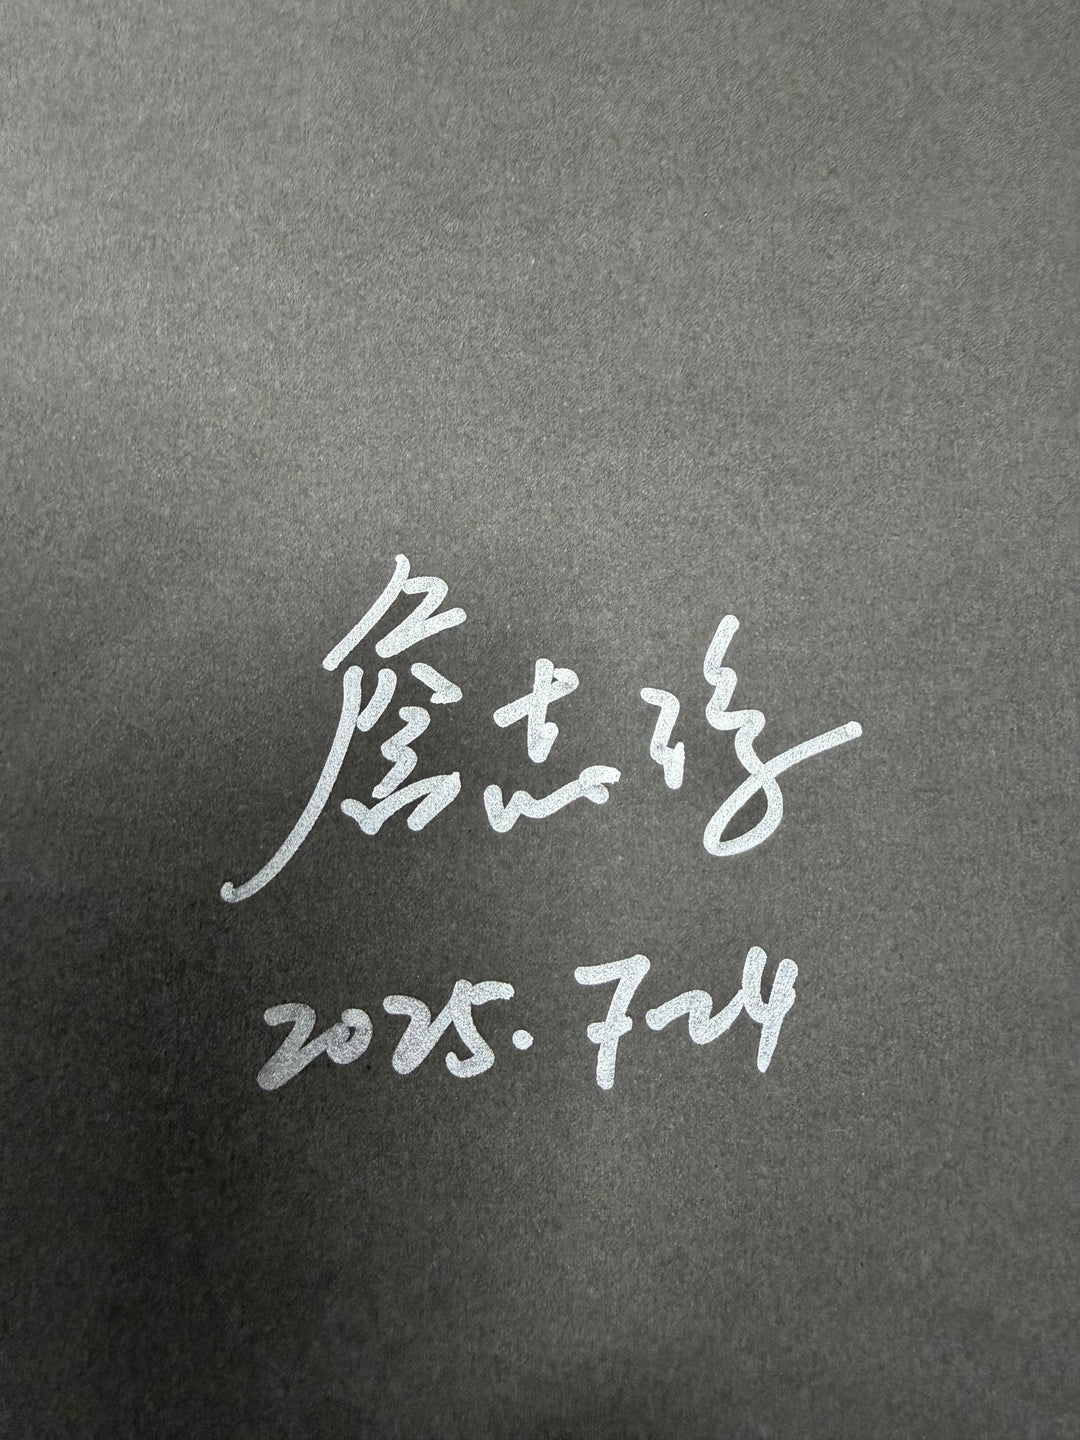 詹志
2025.7-24